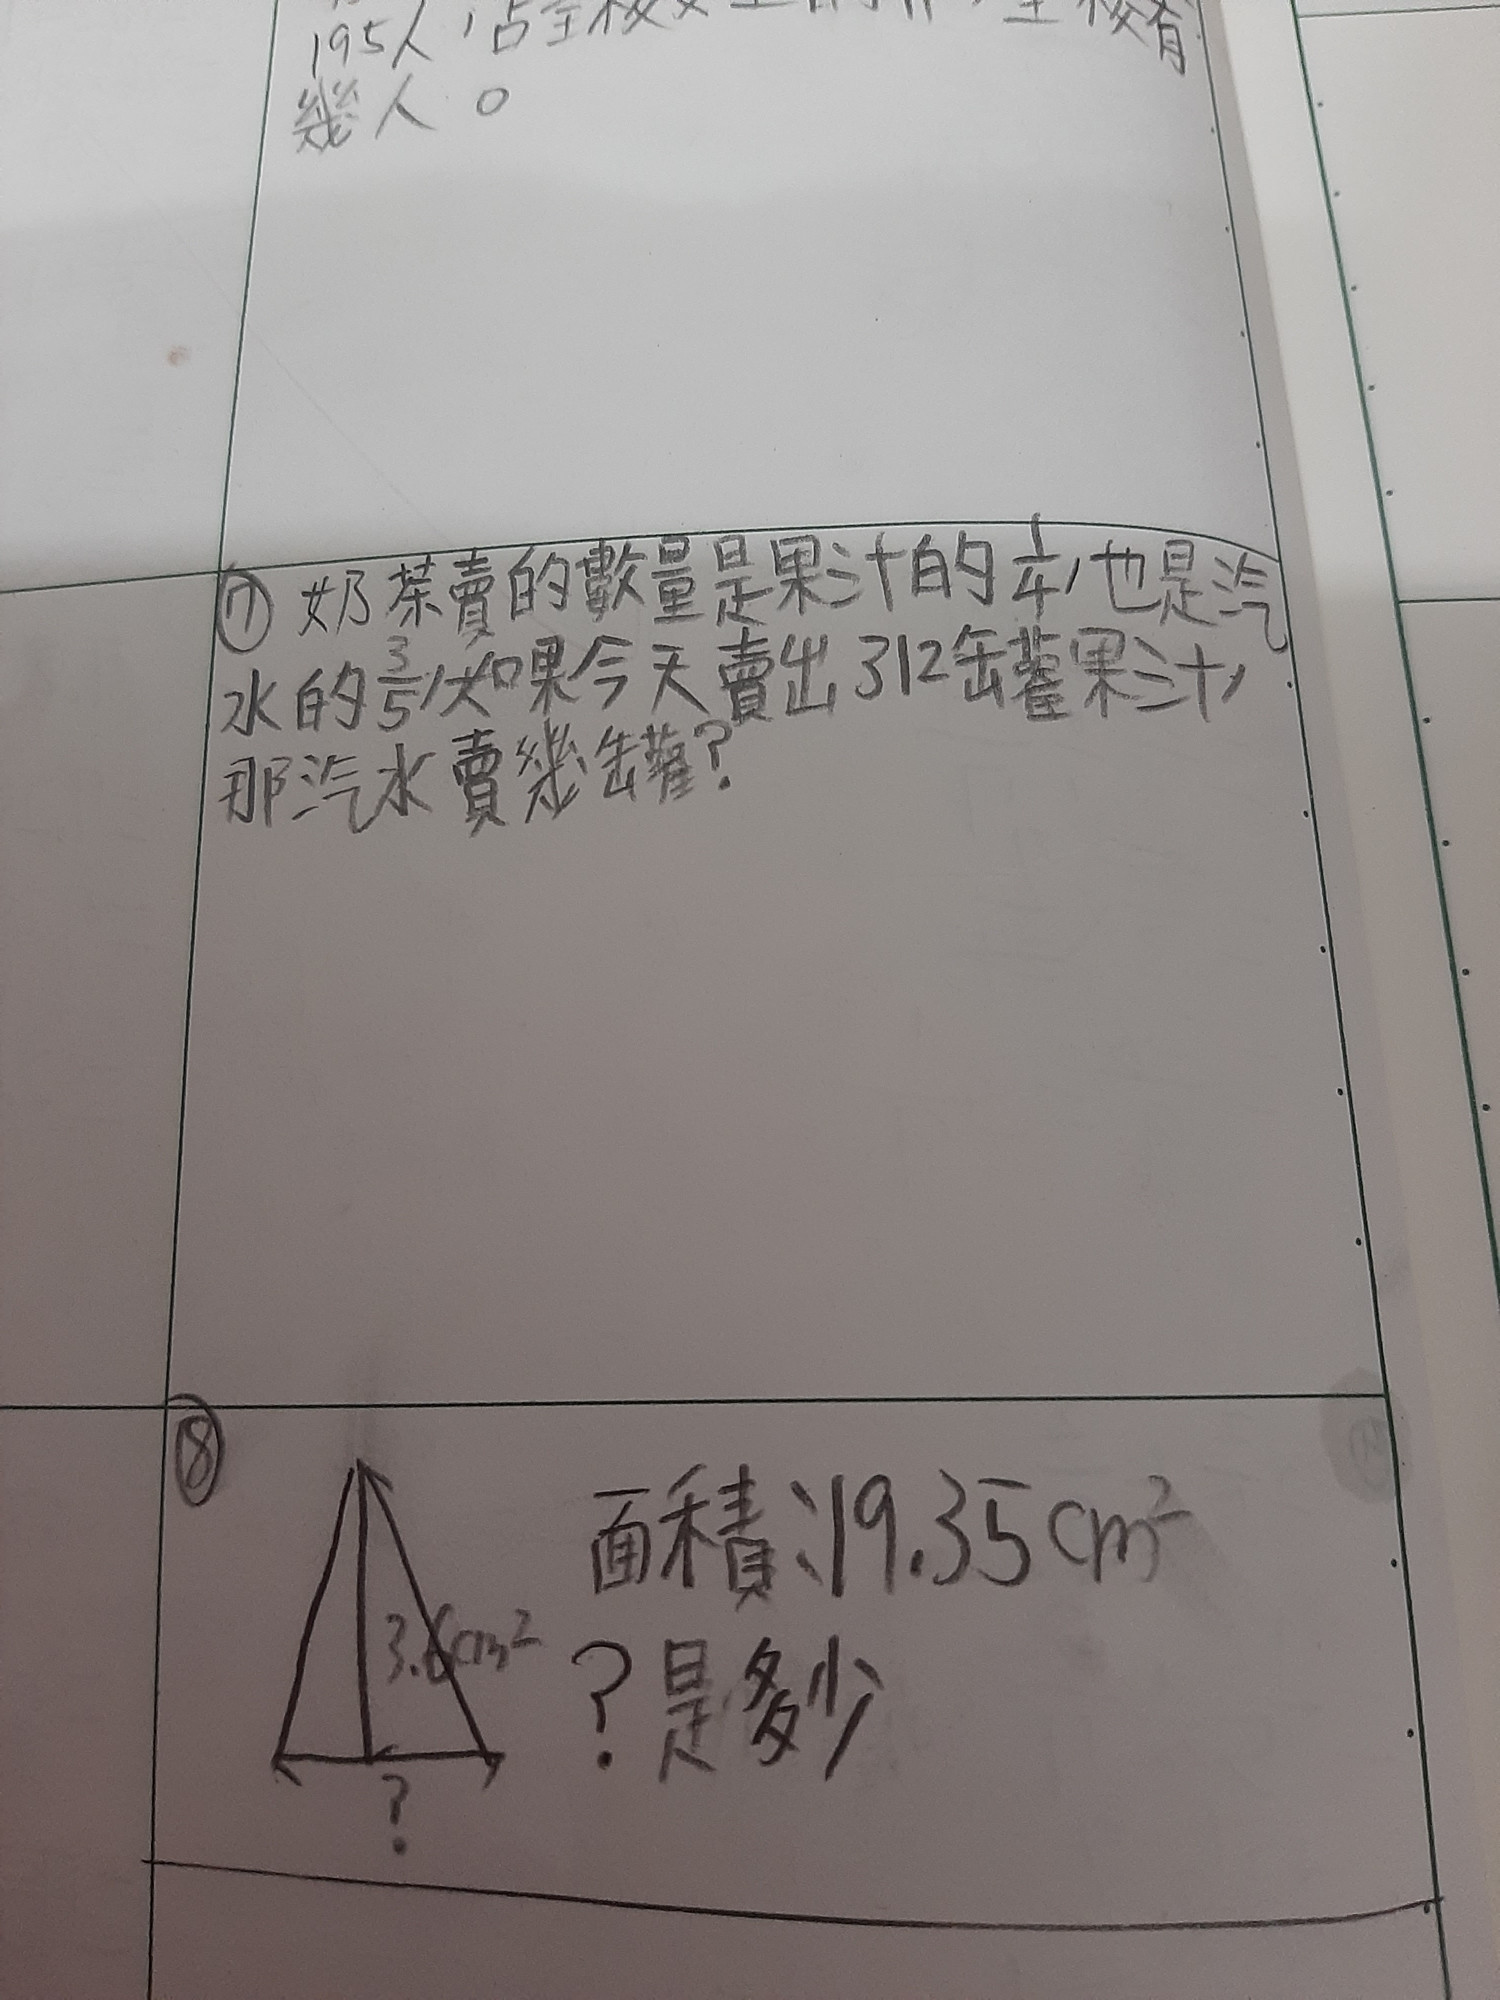 195人,占全校
校有
幾人。
⑦ 奶茶賣的數量是果汁的1/4,也是汽
水的3/5,如果今天賣出312罐果汁,
那汽水賣幾罐?
⑧
面積:19.35cm²
3.6cm²
?是多少
?